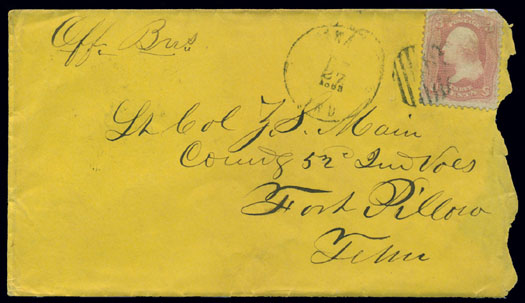 Off. Bus.
27
1863
IND
Lt Col Z. S. Main
Comdg 52d Ind Vols
Fort Pillow
Tenn